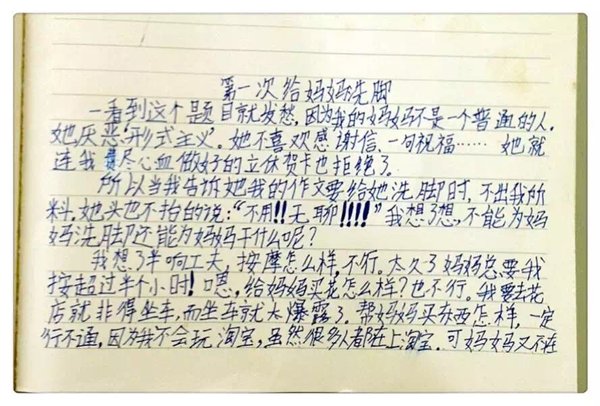 第一次给妈妈洗脚
一看到这个题目就发愁,因为我的妈妈不是一个普通的人,
她厌恶"形式主义"。她不喜欢感谢信、一句祝福……她就
连我尽心血做好的立体贺卡也拒绝了。
所以当我告诉她我的作文要给她洗脚时,不出我所
料,她头也不抬的说:"不用!!无聊!!!!"我想了想,不能为妈
妈洗脚还能为妈妈干什么呢?
我想了半响工夫,按摩怎么样,不行。太久了妈妈总要我
按超过半个小时!嗯,给妈妈买花怎么样?也不行。我要去花
店就非得坐车,而坐车就太爆露了。帮妈妈买东西怎样,一定
行不通,因为我不会玩淘宝,虽然很多人都在上淘宝。可妈妈又不在